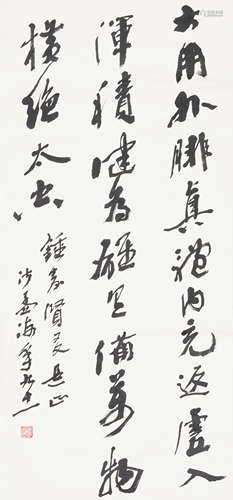 大用外腓真體内充返虛入
渾積健為雄具備萬物
橫絕太空
鍾賢友是正
沙孟海年九十